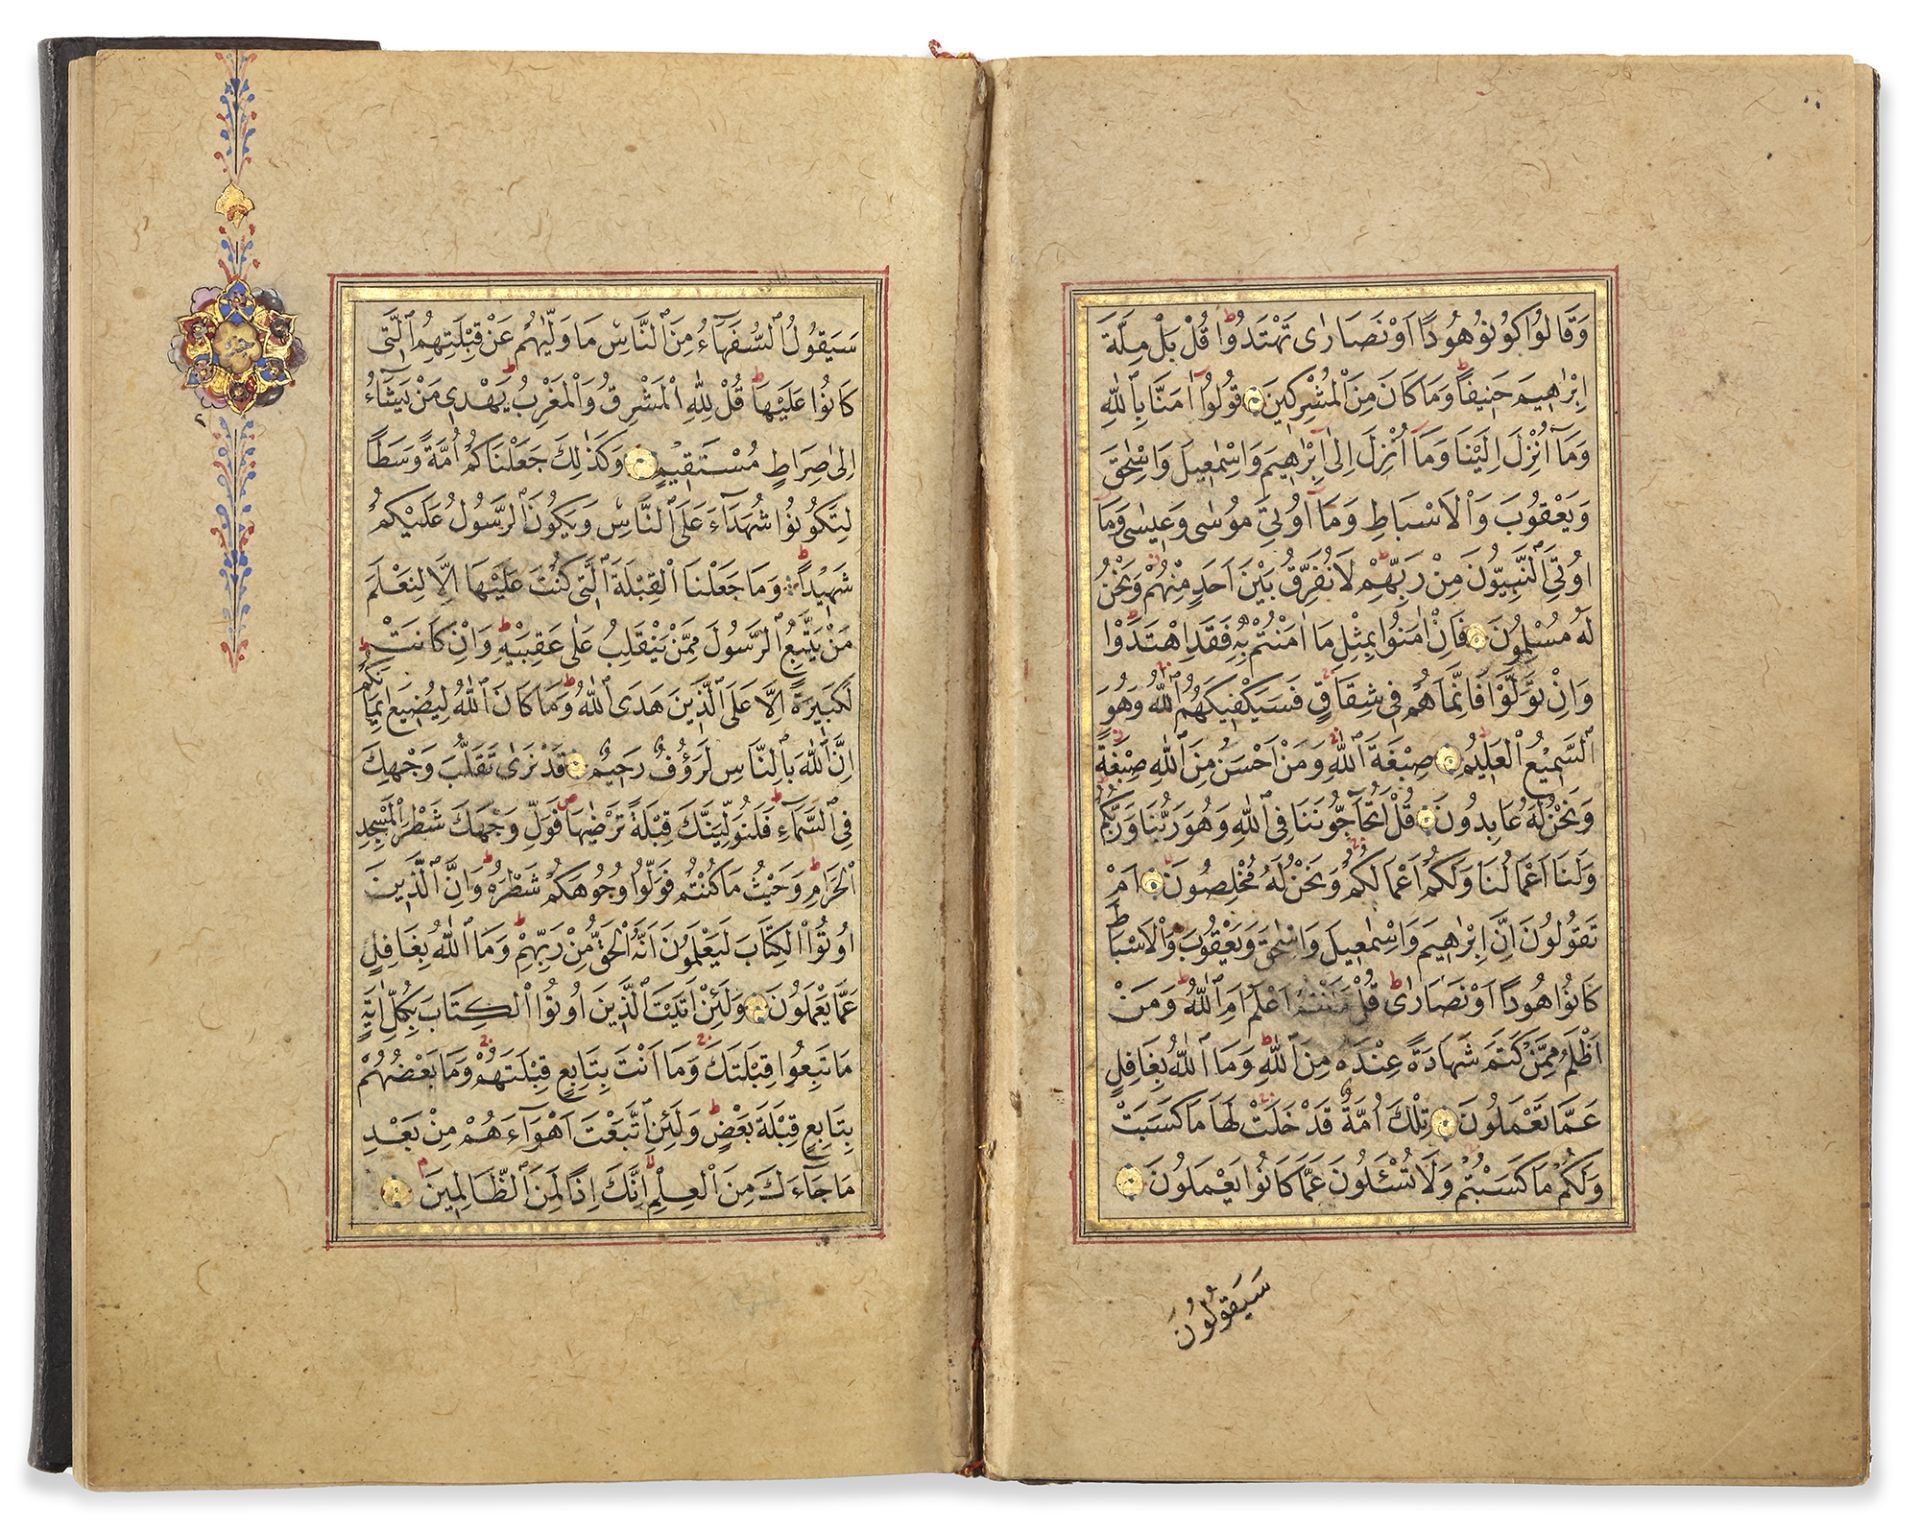 وَقَالُوا كُونُوا هُودًا اَوْ نَصَارٰى تَهْتَدُوا قُلْ بَلْ مِلَّةَ
اِبْرٰهِيمَ حَنِيفًا وَمَا كَانَ مِنَ الْمُشْرِكِينَ قُولُوا اٰمَنَّا بِاللّٰهِ
وَمَٓا اُنْزِلَ اِلَيْنَا وَمَٓا اُنْزِلَ اِلٰٓى اِبْرٰهِيمَ وَاِسْمٰعِيلَ وَاِسْحٰقَ
وَيَعْقُوبَ وَالْاَسْبَاطِ وَمَٓا اُو۫تِيَ مُوسٰى وَعِيسٰى وَمَٓا
اُو۫تِيَ النَّبِيُّونَ مِنْ رَبِّهِمْ لَا نُفَرِّقُ بَيْنَ اَحَدٍ مِنْهُمْ وَنَحْنُ
لَهُ مُسْلِمُونَ فَاِنْ اٰمَنُوا بِمِثْلِ مَٓا اٰمَنْتُمْ بِهِ فَقَدِ اهْتَدَوْا
وَاِنْ تَوَلَّوْا فَاِنَّمَا هُمْ فِي شِقَاقٍ فَسَيَكْفِيكَهُمُ اللّٰهُ وَهُوَ
السَّمِيعُ الْعَلِيمُ صِبْغَةَ اللّٰهِ وَمَنْ اَحْسَنُ مِنَ اللّٰهِ صِبْغَةً
وَنَحْنُ لَهُ عَابِدُونَ قُلْ اَتُحَٓاجُّونَنَا فِي اللّٰهِ وَهُوَ رَبُّنَا وَرَبُّكُمْ
وَلَنَٓا اَعْمَالُنَا وَلَكُمْ اَعْمَالُكُمْ وَنَحْنُ لَهُ مُخْلِصُونَ اَمْ
تَقُولُونَ اِنَّ اِبْرٰهِيمَ وَاِسْمٰعِيلَ وَاِسْحٰقَ وَيَعْقُوبَ وَالْاَسْبَاطَ
كَانُوا هُودًا اَوْ نَصَارٰى قُلْ ءَاَنْتُمْ اَعْلَمُ اَمِ اللّٰهُ وَمَنْ
اَظْلَمُ مِمَّنْ كَتَمَ شَهَادَةً عِنْدَهُ مِنَ اللّٰهِ وَمَا اللّٰهُ بِغَافِلٍ
عَمَّا تَعْمَلُونَ تِلْكَ اُمَّةٌ قَدْ خَلَتْ لَهَا مَا كَسَبَتْ
وَلَكُمْ مَا كَسَبْتُمْ وَلَا تُسْـَٔلُونَ عَمَّا كَانُوا يَعْمَلُونَ
سَيَقُولُونَ
سَيَقُولُ السُّفَهَٓاءُ مِنَ النَّاسِ مَا وَلّٰيهُمْ عَنْ قِبْلَتِهِمُ الَّتِي
كَانُوا عَلَيْهَا قُلْ لِلّٰهِ الْمَشْرِقُ وَالْمَغْرِبُ يَهْدِي مَنْ يَشَٓاءُ
اِلٰى صِرَاطٍ مُسْتَقِيمٍ وَكَذٰلِكَ جَعَلْنَاكُمْ اُمَّةً وَسَطًا
لِتَكُونُوا شُهَدَٓاءَ عَلَى النَّاسِ وَيَكُونَ الرَّسُولُ عَلَيْكُمْ
شَهِيدًا وَمَا جَعَلْنَا الْقِبْلَةَ الَّتِي كُنْتَ عَلَيْهَا اِلَّا لِنَعْلَمَ
مَنْ يَتَّبِعُ الرَّسُولَ مِمَّنْ يَنْقَلِبُ عَلٰى عَقِبَيْهِ وَاِنْ كَانَتْ
لَكَبِيرَةً اِلَّا عَلَى الَّذِينَ هَدَى اللّٰهُ وَمَا كَانَ اللّٰهُ لِيُضِيعَ اِيمَانَكُمْ
اِنَّ اللّٰهَ بِالنَّاسِ لَرَؤُفٌ رَحِيمٌ قَدْ نَرٰى تَقَلُّبَ وَجْهِكَ
فِي السَّمَٓاءِ فَلَنُوَلِّيَنَّكَ قِبْلَةً تَرْضٰيهَا فَوَلِّ وَجْهَكَ شَطْرَ الْمَسْجِدِ
الْحَرَامِ وَحَيْثُ مَا كُنْتُمْ فَوَلُّوا وُجُوهَكُمْ شَطْرَهُ وَاِنَّ الَّذِينَ
اُو۫تُوا الْكِتَابَ لَيَعْلَمُونَ اَنَّهُ الْحَقُّ مِنْ رَبِّهِمْ وَمَا اللّٰهُ بِغَافِلٍ
عَمَّا يَعْمَلُونَ وَلَئِنْ اَتَيْتَ الَّذِينَ اُو۫تُوا الْكِتَابَ بِكُلِّ اٰيَةٍ
مَا تَبِعُوا قِبْلَتَكَ وَمَٓا اَنْتَ بِتَابِعٍ قِبْلَتَهُمْ وَمَا بَعْضُهُمْ
بِتَابِعٍ قِبْلَةَ بَعْضٍ وَلَئِنِ اتَّبَعْتَ اَهْوَٓاءَهُمْ مِنْ بَعْدِ
مَا جَٓاءَكَ مِنَ الْعِلْمِ اِنَّكَ اِذًا لَمِنَ الظَّالِمِينَ